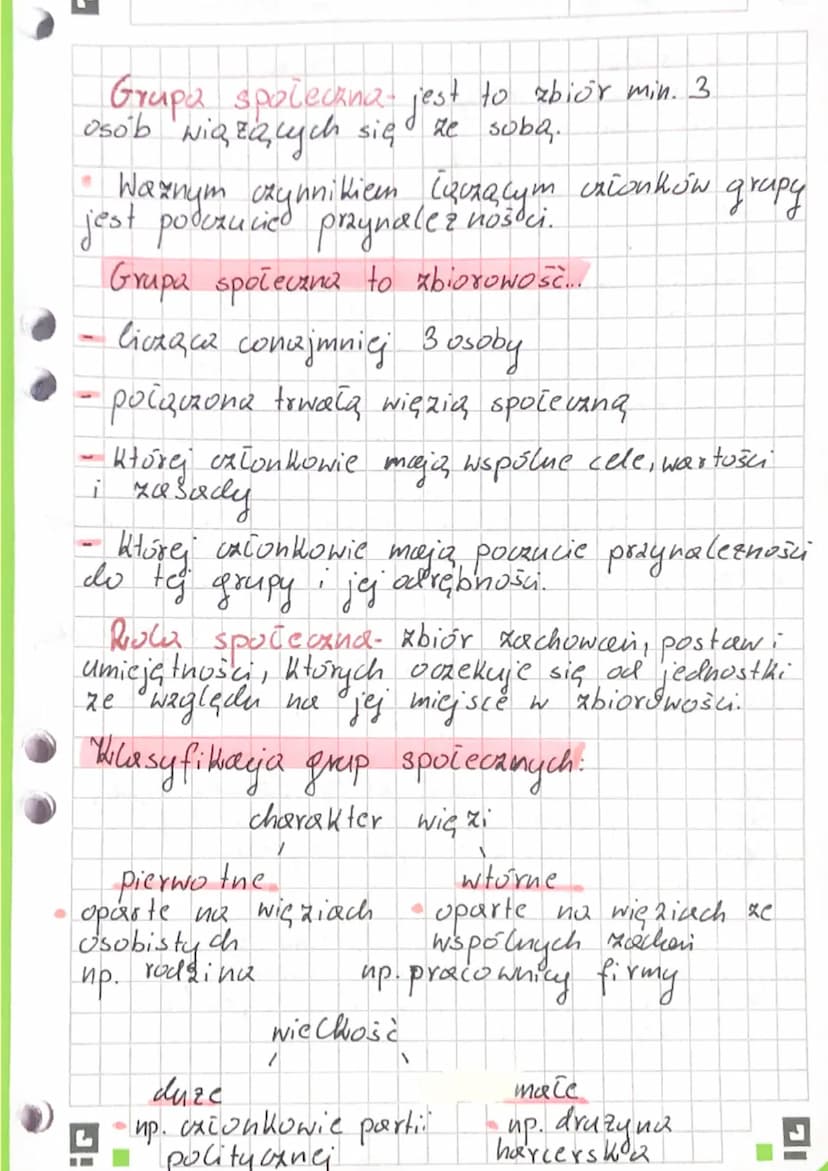 Grupa społeczna- jest to zbiór min. 3
osób wiążących się ze sobą.
• Ważnym czynnikiem łączącym członków grupy
jest poczucie przynależności.
Grupa społeczna to zbiorowość...
- licząca conajmniej 3 osoby
- połączona trwałą więzią społeczną
- której członkowie mają wspólne cele, wartości
i zasady
- której członkowie mają poczucie przynależności
do tej grupy i jej odrębności.
Rola społeczna- zbiór zachowań, postaw i
umiejętności, których oczekuje się od jednostki
ze względu na jej miejsce w zbiorowości.
Klasyfikacja grup społecznych:
charakter więzi
pierwotne
• oparte na więziach
osobistych
np. rodzina
wtórne
• oparte na więziach ze
wspólnych
np. pracownicy firmy
wielkość
duże
• np. członkowie partii
politycznej
małe
• np. drużyna
harcerska